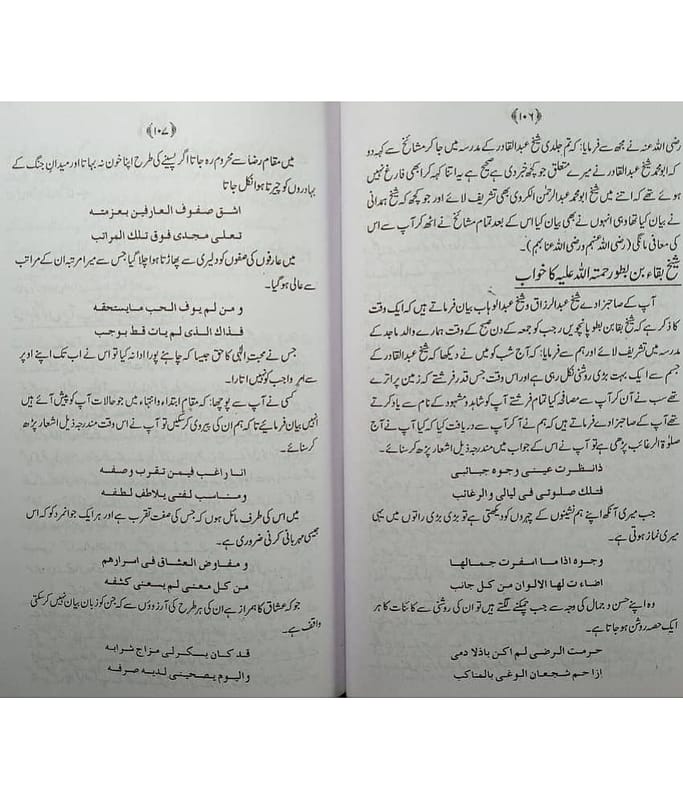 ﴿۱۰۶﴾
رضی اللہ عنہ نے مجھ سے فرمایا: کہ تم جلدی شیخ عبدالقادر کے مدرسہ میں جا کر مشائخ سے کہہ دو
کہ ابو محمد شیخ عبدالقادر نے میرے متعلق جو کچھ خبر دی ہے صحیح ہے یہ اتنا کہہ کر ابھی فارغ نہیں
ہوئے تھے کہ اتنے میں شیخ ابو محمد عبدالرحمٰن الکردی بھی تشریف لائے اور جو کچھ کہ شیخ ہمدانی
نے بیان کیا تھا وہی انہوں نے بھی بیان کیا اس کے بعد تمام مشائخ نے اٹھ کر آپ سے اس
کی معافی مانگی (رضی اللہ عنہم ورضی اللہ عنا بہم)۔
شیخ بقاء بن بطو رحمۃ اللہ علیہ کا خواب
آپ کے صاحبزادے شیخ عبدالرزاق و شیخ عبدالوہاب بیان فرماتے ہیں کہ ایک وقت
کا ذکر ہے کہ شیخ بقا بن بطو پانچویں رجب کو جمعہ کے دن صبح کے وقت ہمارے والد ماجد کے
مدرسہ میں تشریف لائے اور ہم سے فرمایا: کہ آج شب کو میں نے دیکھا کہ شیخ عبدالقادر کے
جسم سے ایک بہت بڑی روشنی نکل رہی ہے اور اس وقت جس قدر فرشتے کہ زمین پر اترے
تھے سب نے آن کر آپ سے مصافحہ کیا تمام فرشتے آپ کو شاہد و مشہود کے نام سے یاد کرتے
تھے آپ کے صاحبزادے فرماتے ہیں کہ ہم نے آکر آپ سے دریافت کیا کہ کیا آپ نے آج
صلوٰۃ الرغائب پڑھی ہے تو آپ نے اس کے جواب میں مندرجہ ذیل اشعار پڑھ کر سنائے۔
ذانظرت عینی وجوہ جبائبی
فتلک صلوتی فی لیالی والرغائب
جب میری آنکھ اپنے ہم نشینوں کے چہروں کو دیکھتی ہے تو بڑی بڑی راتوں میں یہی
میری نماز ہوتی ہے۔
وجوہ اذا ما اسفرت جمالها
اضاءت لها الالوان من کل جانب
وہ اپنے حسن و جمال کی وجہ سے جب چمکنے لگتے ہیں تو ان کی روشنی سے کائنات کا ہر
ایک حصہ روشن ہو جاتا ہے۔
حرمت الرضی لم اکن باذلا دمی
ازاحم شجعان الوغی بالمناکب
﴿۱۰۷﴾
میں مقام رضا سے محروم رہ جاتا اگر پسینے کی طرح اپنا خون نہ بہاتا اور میدان جنگ کے
بہادروں کو چیرتا ہوا نکل جاتا
اشق صفوف العارفین بعزمته
تعلی مجدی فوق تلک المراتب
میں عارفوں کی صفوں کو دلیری سے پھاڑتا ہوا چلا گیا جس سے میرا مرتبہ ان کے مراتب
سے عالی ہوگیا۔
و من لم یوف الحب مایستحقه
فذاک الذی لم یات قط بوجب
جس نے محبت الٰہی کا حق جیسا کہ چاہئے پورا ادا نہ کیا تو اس نے اب تک اپنے اوپر
سے امر واجب کو نہیں اتارا۔
کسی نے آپ سے پوچھا: کہ مقام ابتداء وانتہاء میں جو حالات آپ کو پیش آئے ہیں
انہیں بیان فرمائیے تاکہ ہم ان کی پیروی کر سکیں تو آپ نے اس وقت مندرجہ ذیل اشعار پڑھ
کر سنائے۔
انا راغب فیمن تقرب وصفه
ومناسب لفتی یلاطف لطفه
میں اس کی طرف مائل ہوں کہ جس کی صفت تقرب ہے اور ہر ایک جوانمرد کو کہ اس
جیسی مہربانی کرنی ضروری ہے۔
و مفاوض العشاق فی اسرارهم
من کل معنی لم یسعنی کشفه
جو کہ عشاق کا ہمراز ہے ان کی ہر طرح کی آرزوؤں سے کہ جن کو زبان بیان نہیں کر سکتی
واقف ہے۔
قد کان یسکرنی مزاج شرابه
والیوم یصحینی لدیه صرفه